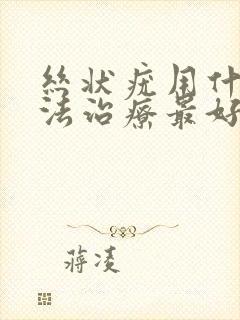 丝状疣用什
法治疗最好
蒋凌